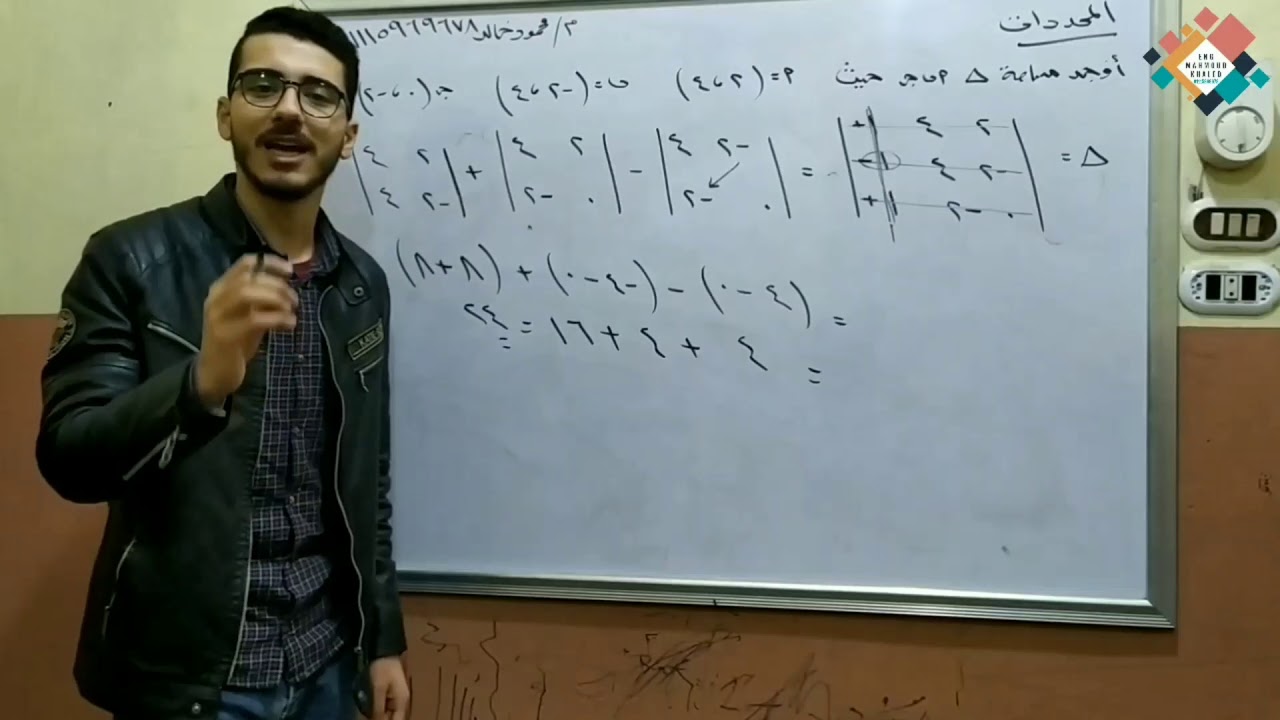 المحددات
م/محمود خالد ١١١٥٩٦٩٦٧٨
أوجد مساحة △ ٢ ب ج حيث ٢ = (٢ ، ٤) ب = (-٢ ، ٤) ج = (٠ ، -٢)
△ = | ٢ ٤ ١+ | = | -٢ ٤ | - | ٢ ٤ | + | ٢ ٤ |
| -٢ ٤ ١- |
| ٠ -٢ ١+ | | ٠ -٢ | | ٠ -٢ | | -٢ ٤ |
= (٤ - ٠) - (-٤ - ٠) + (٨ + ٨)
= ٤ + ٤ + ١٦ = ٢٤
ENG
MAHMOUD
KHALED